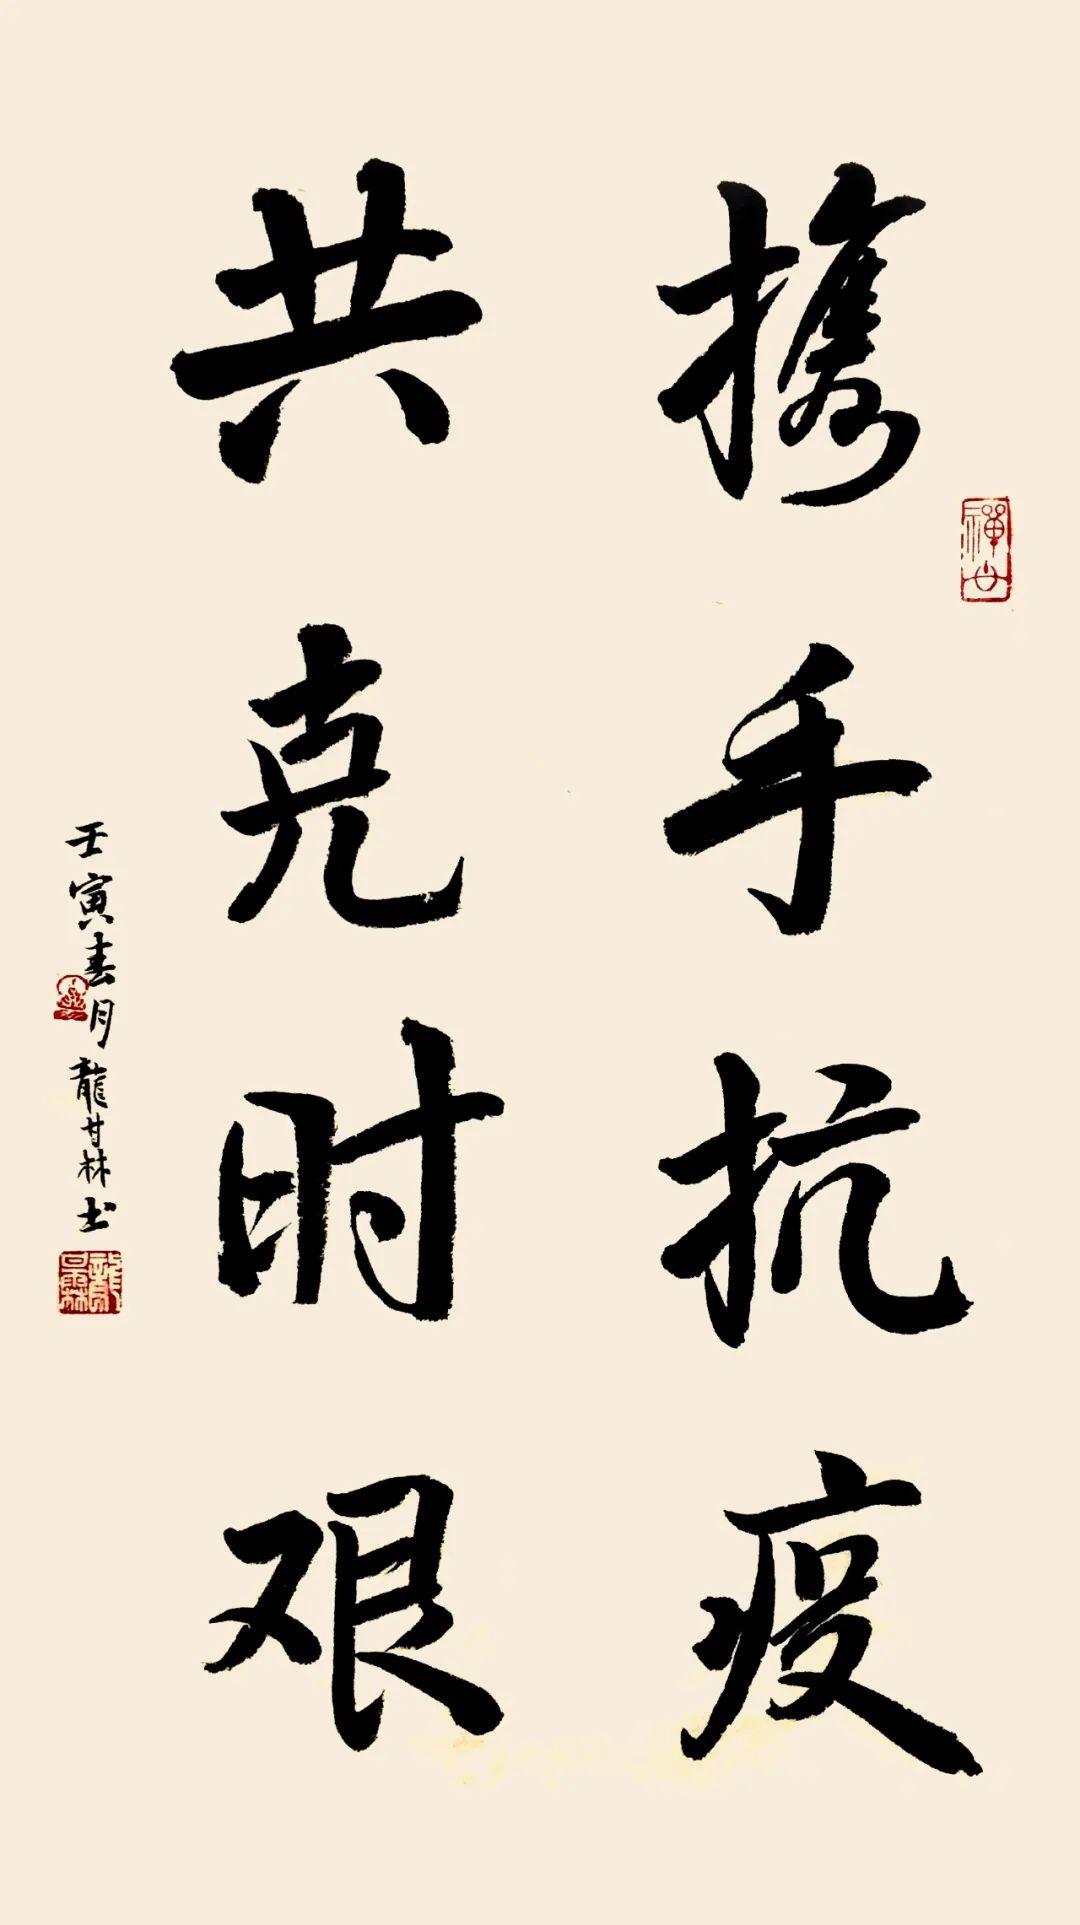 携手抗疫
共克时艰
壬寅春月龍甘林书